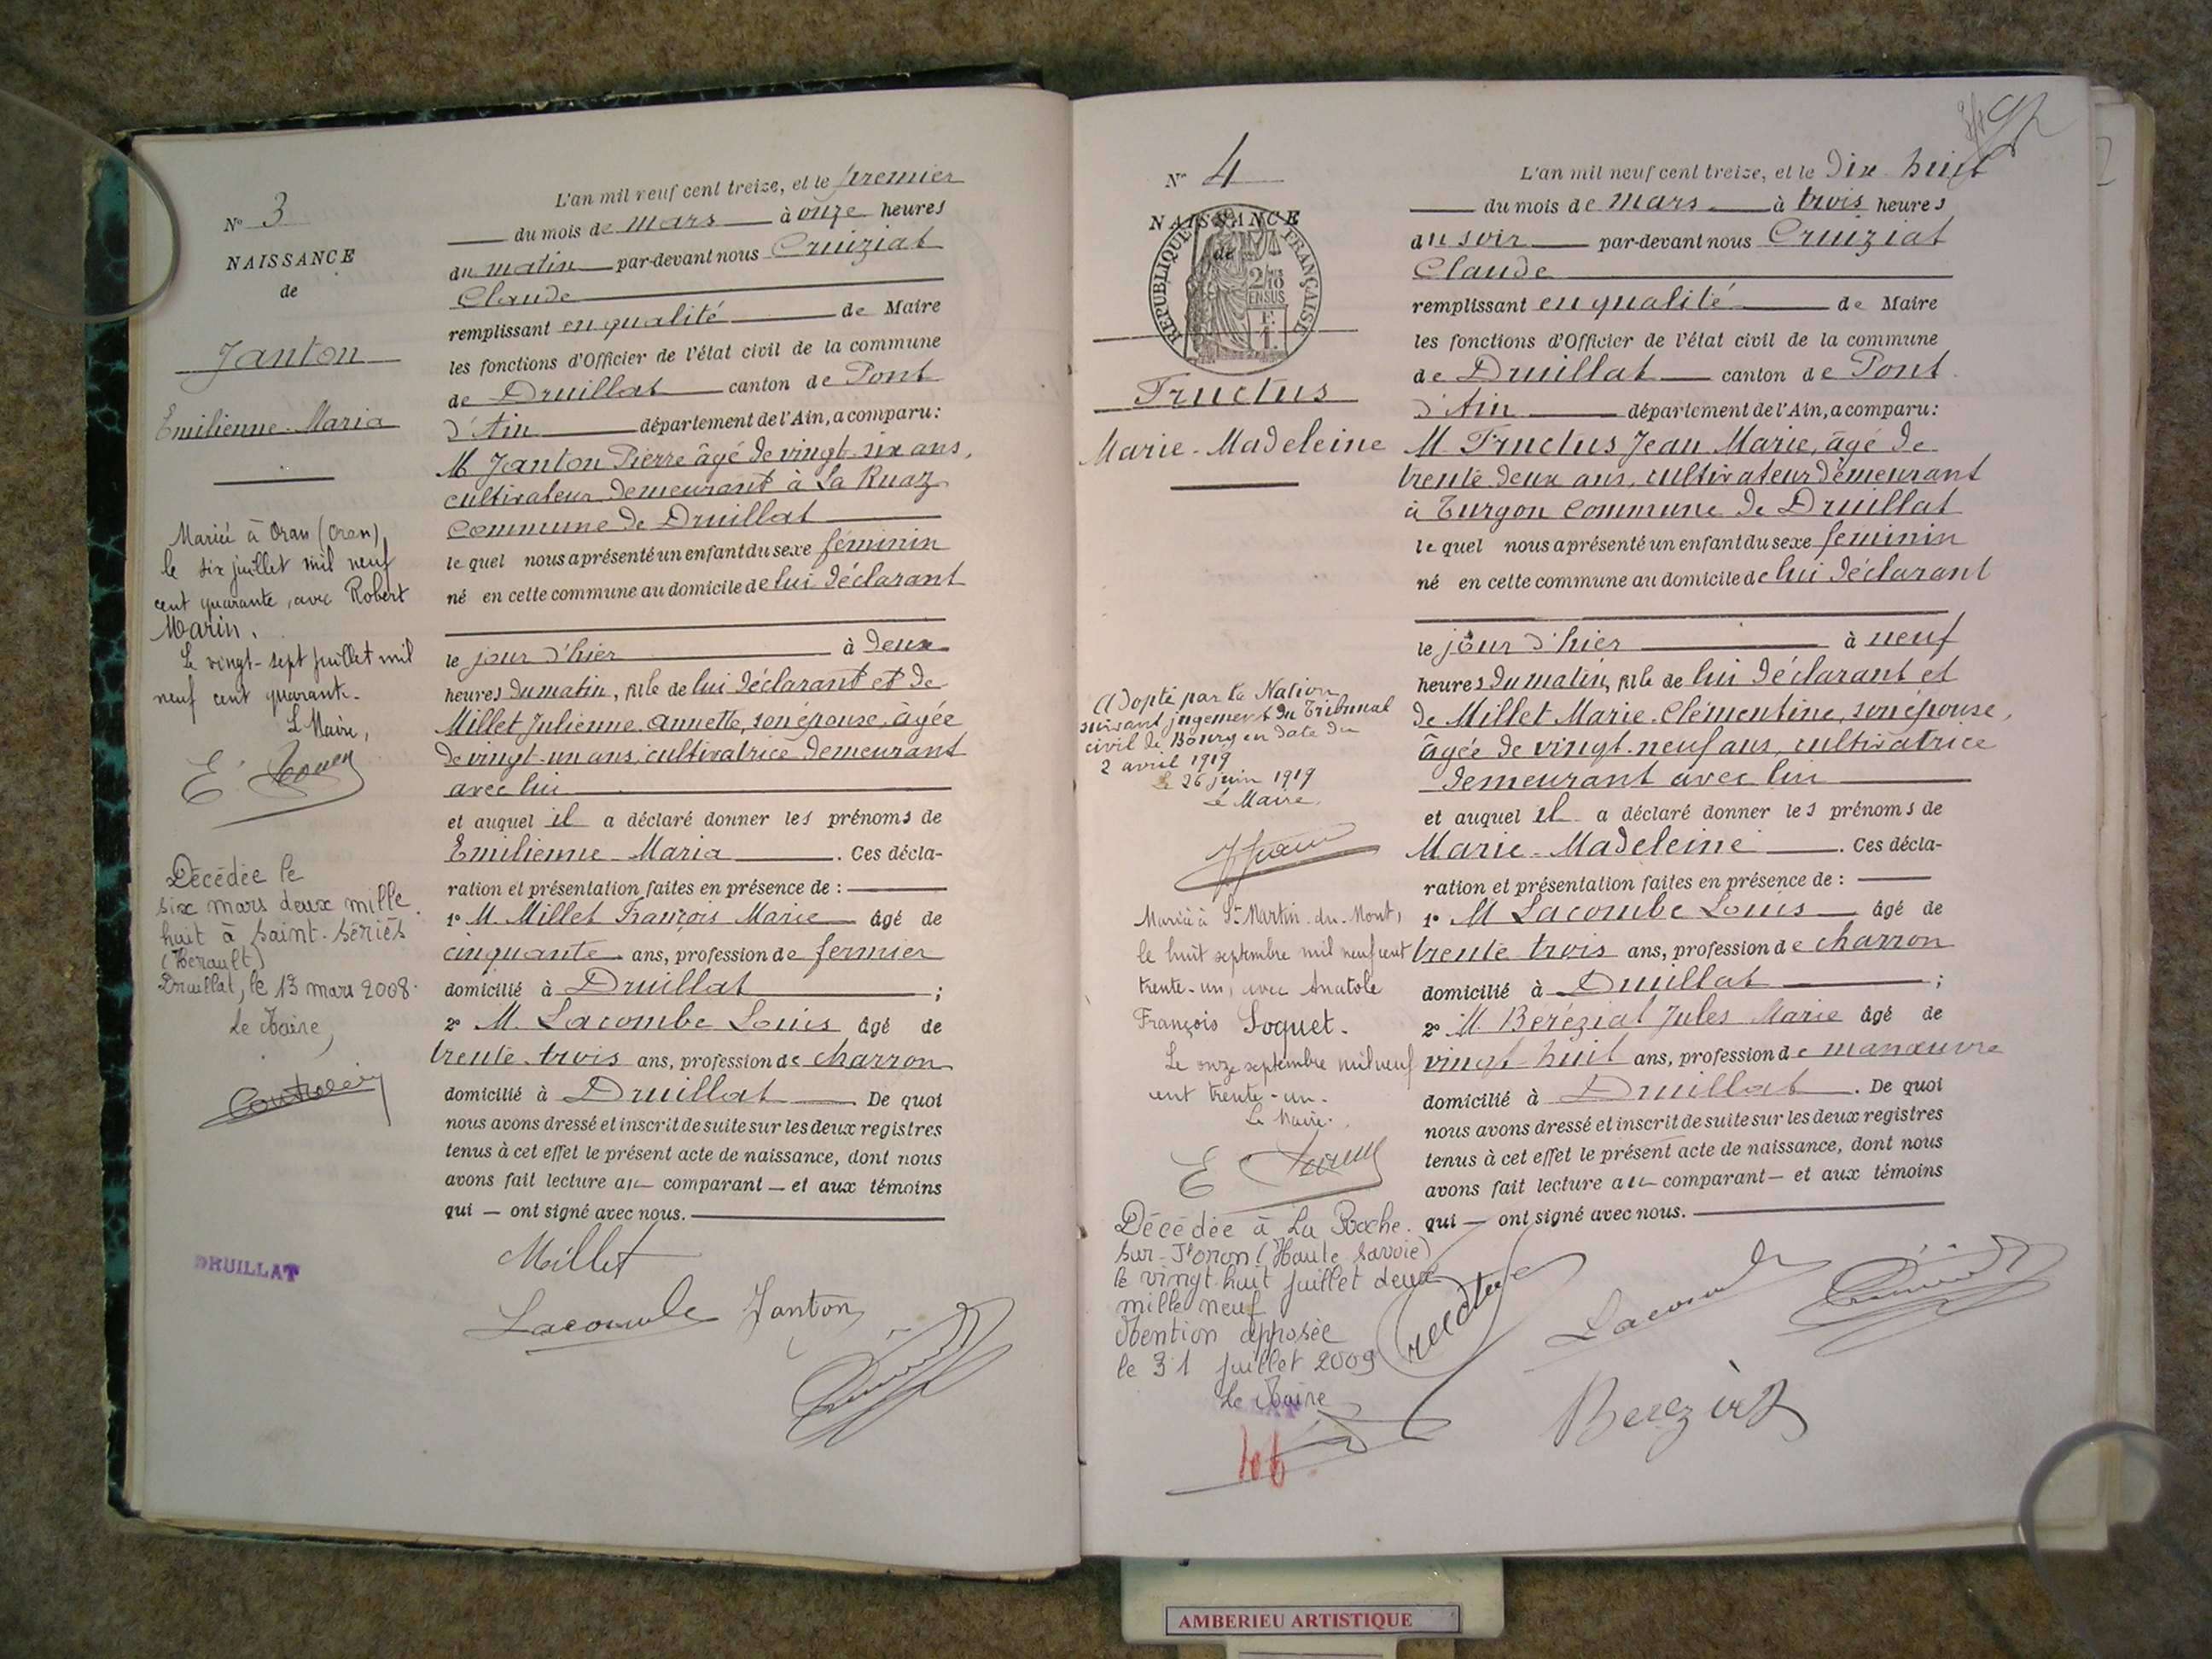 N° 3
NAISSANCE
de
Janton
Emilienne-Maria
Mariée à Oran (Oran)
le six juillet mil neuf
cent quarante, avec Robert
Marin.
Le vingt-sept juillet mil
neuf cent quarante.
Le Maire,
Décédée le
six mars deux mille
huit à Saint-Sériès
(Hérault)
Druillat, le 13 mars 2008.
Le Maire,
DRUILLAT
L'an mil neuf cent treize, et le premier
du mois de mars à onze heures
du matin par-devant nous Cruiziat
Claude
remplissant en qualité de Maire
les fonctions d'Officier de l'état civil de la commune
de Druillat canton de Pont
d'Ain département de l'Ain, a comparu:
M Janton Pierre âgé de vingt-six ans,
cultivateur demeurant à La Ruaz
commune de Druillat
le quel nous a présenté un enfant du sexe féminin
né en cette commune au domicile de lui déclarant
le jour d'hier à deux
heures du matin, fille de lui déclarant et de
Millet Julienne Annette, son épouse, âgée
de vingt-un ans, cultivatrice demeurant
avec lui
et auquel il a déclaré donner les prénoms de
Emilienne-Maria. Ces décla-
ration et présentation faites en présence de :
1° M. Millet François Marie âgé de
cinquante ans, profession de fermier
domicilié à Druillat ;
2° M. Lacombe Louis âgé de
trente-trois ans, profession de charron
domicilié à Druillat De quoi
nous avons dressé et inscrit de suite sur les deux registres
tenus à cet effet le présent acte de naissance, dont nous
avons fait lecture au comparant et aux témoins
qui ont signé avec nous.
Millet
Lacombe Janton
N° 4
NAISSANCE
de
RÉPUBLIQUE FRANÇAISE
2/10
EN SUS
Fructus
Marie-Madeleine
Adopté par la Nation
suivant jugement du Tribunal
civil de Bourg en date du
2 avril 1919
Le 26 juin 1919
Le Maire,
Mariée à St Martin-du-Mont,
le huit septembre mil neuf cent
trente-un, avec Anatole
François Soquet.
Le onze septembre mil neuf
cent trente-un.
Le Maire.
Décédée à La Roche
sur-Foron (Haute Savoie)
le vingt-huit juillet deux
mille neuf
Mention apposée
le 31 juillet 2009
Le Maire
46
L'an mil neuf cent treize, et le dix huit
du mois de mars à trois heures
du soir par-devant nous Cruiziat
Claude
remplissant en qualité de Maire
les fonctions d'Officier de l'état civil de la commune
de Druillat canton de Pont
d'Ain département de l'Ain, a comparu:
M. Fructus Jean Marie, âgé de
trente deux ans, cultivateur demeurant
à Turgon commune de Druillat
le quel nous a présenté un enfant du sexe féminin
né en cette commune au domicile de lui déclarant
le jour d'hier à neuf
heures du matin, fille de lui déclarant et
de Millet Marie-Clémentine, son épouse,
âgée de vingt-neuf ans, cultivatrice
demeurant avec lui
et auquel il a déclaré donner les prénoms de
Marie-Madeleine. Ces décla-
ration et présentation faites en présence de :
1° M Lacombe Louis âgé de
trente trois ans, profession de charron
domicilié à Druillat ;
2° M. Beréziat Jules Marie âgé de
vingt-huit ans, profession de manœuvre
domicilié à Druillat. De quoi
nous avons dressé et inscrit de suite sur les deux registres
tenus à cet effet le présent acte de naissance, dont nous
avons fait lecture au comparant et aux témoins
qui ont signé avec nous.
Fructus Lacombe
Bereziat
AMBERIEU ARTISTIQUE